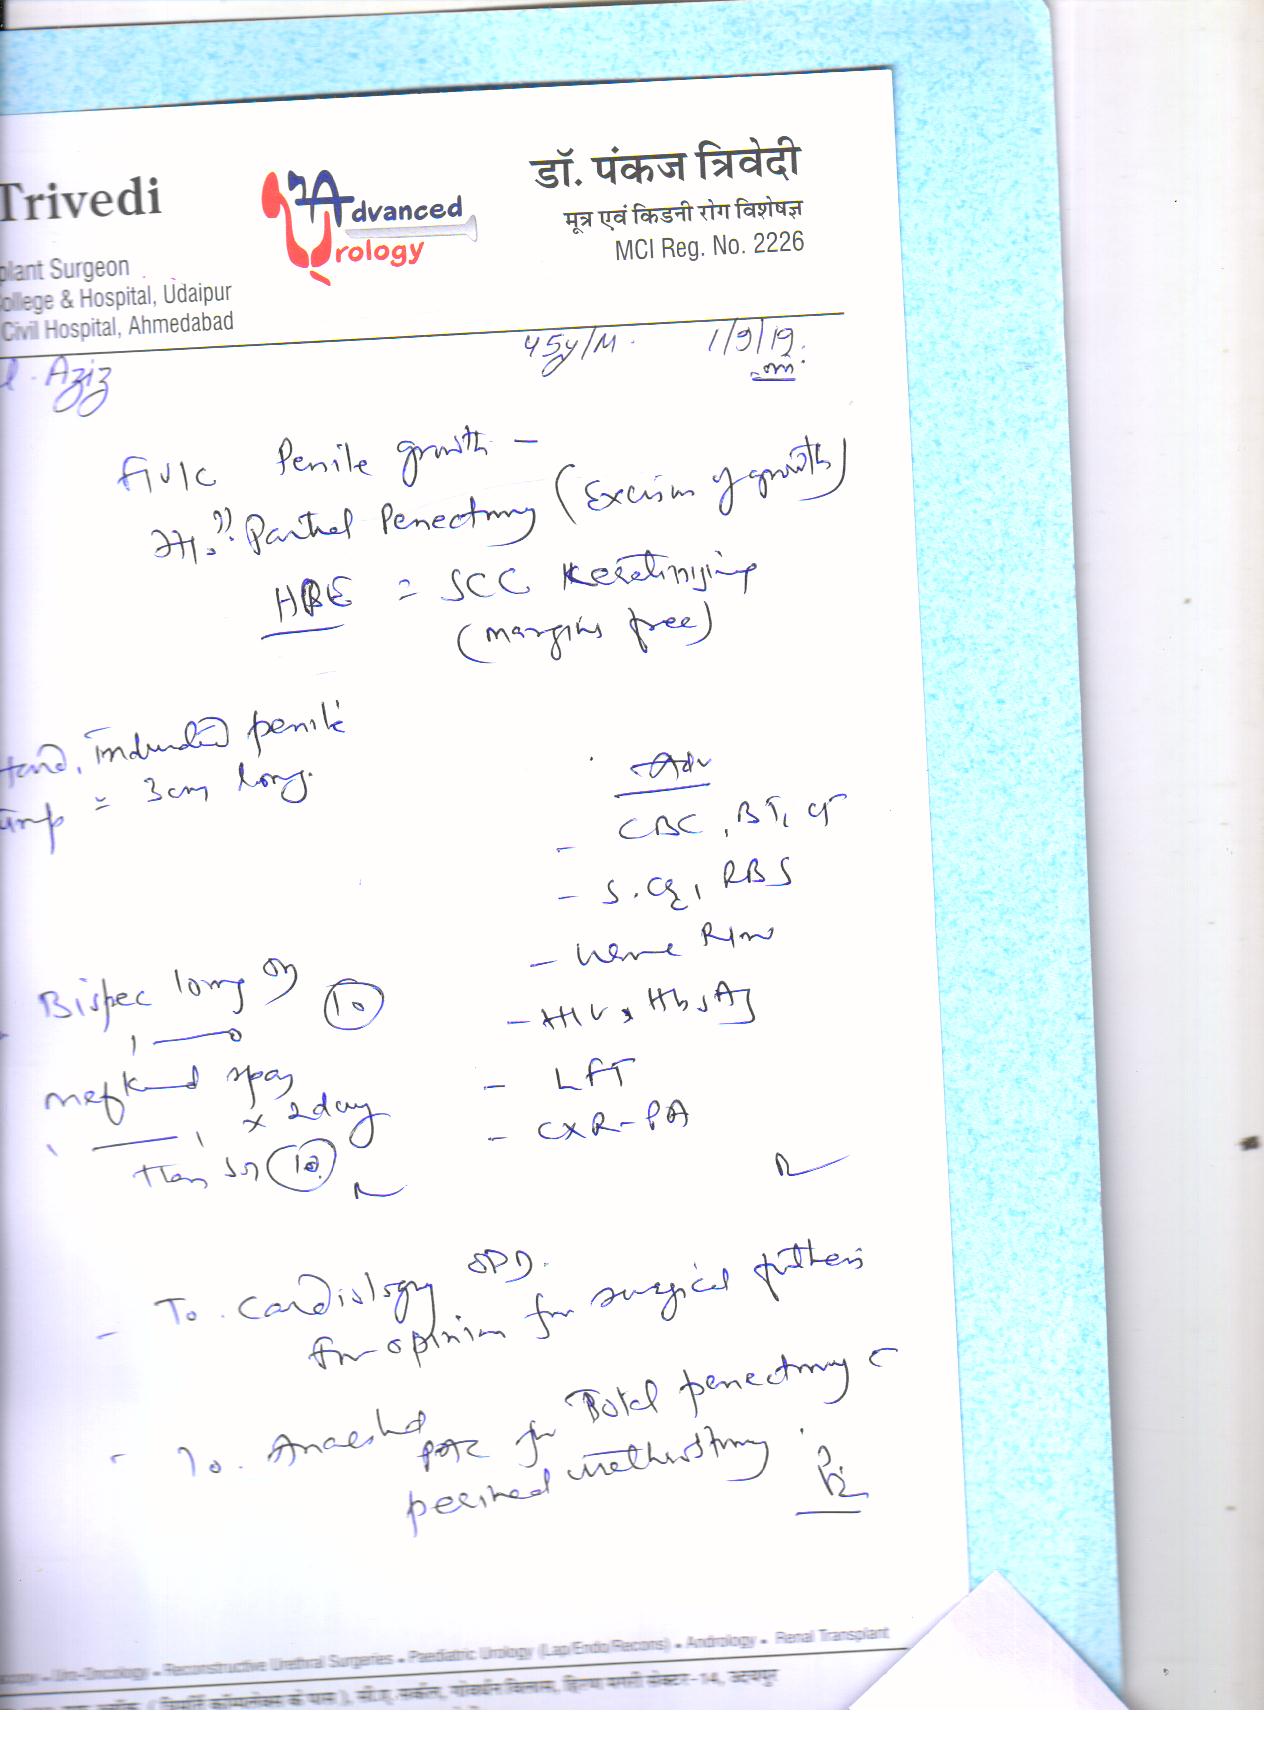 Trivedi
Advanced
Urology
डॉ. पंकज त्रिवेदी
मूत्र एवं किडनी रोग विशेषज्ञ
MCI Reg. No. 2226
plant Surgeon
ollege & Hospital, Udaipur
Civil Hospital, Ahmedabad
Aziz
45y/M. 1/9/19
F/U/C Penile growth -
Partial Penectomy (Excision of growth)
HPE = SCC Keratinizing
(margins free)
Hard, Indurated penile
= 3cm long.
Adv
- CBC, BT, CT
- S. Cr, RBS
- Urine R/m
- HIV, HbsAg
- LFT
- CXR-PA
Bispec long 10
1
mefkind spas
x 2 day
then 10
- To. Cardiology OPD.
for opinion for surgical fitness
- To. Anaesthe
PAC for Total penectomy c
perineal urethrostomy
Uro-Oncology • Reconstructive Urethral Surgeries • Paediatric Urology (Lap/Endo/Recons) • Andrology • Renal Transplant
सेक्टर-14, उदयपुर